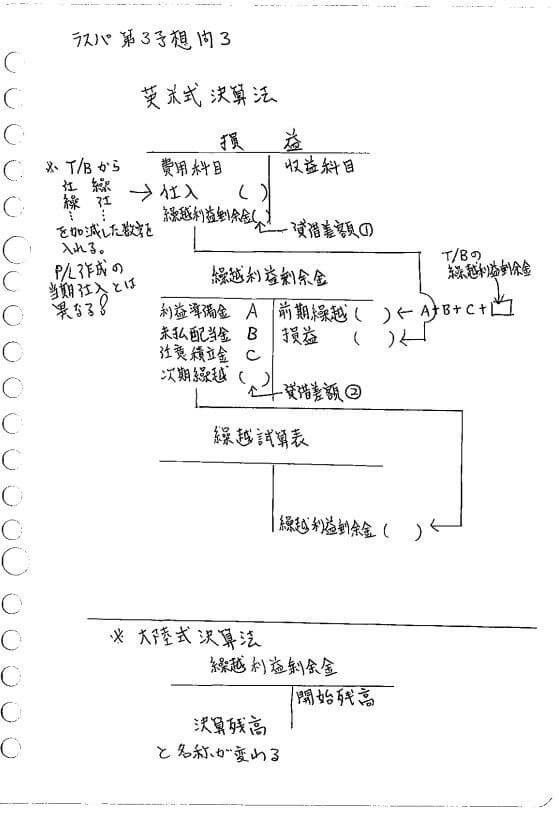 ラスパ 第3予想 問3
英米式決算法
損 益
費用科目
収益科目
※ T/Bから
仕 繰
繰 仕
… …
を加減した数字を
入れる。
P/L作成の
当期仕入とは
異なる!
→ 仕入 ( )
繰越利益剰余金( )
← 貸借差額①
繰越利益剰余金
T/Bの
繰越利益剰余金
利益準備金 A
前期繰越 ( ) ← A+B+C+□
未払配当金 B
損益 ( ) ←
任意積立金 C
次期繰越 ( )
← 貸借差額②
繰越試算表
繰越利益剰余金 ( ) ←
※ 大陸式決算法
繰越利益剰余金
開始残高
決算残高
と名称が変わる